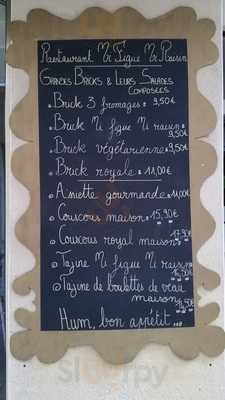 Restaurant Mi Figue Mi Raisin
Grandes Bricks & Leurs Salades
Composées
Brick 3 fromages 9,50€
Brick Mi figue Mi raisin
9,50€
Brick végétarienne 9,50€
Brick royale 11,00€
Assiette gourmande 11,00€
Couscous maison 15,90€
17,90€
Couscous royal maison
Tajine Mi figue Mi raisin
16,50€
Tajine de boulettes de veau
maison 16,50€
Hum, bon appétit ...